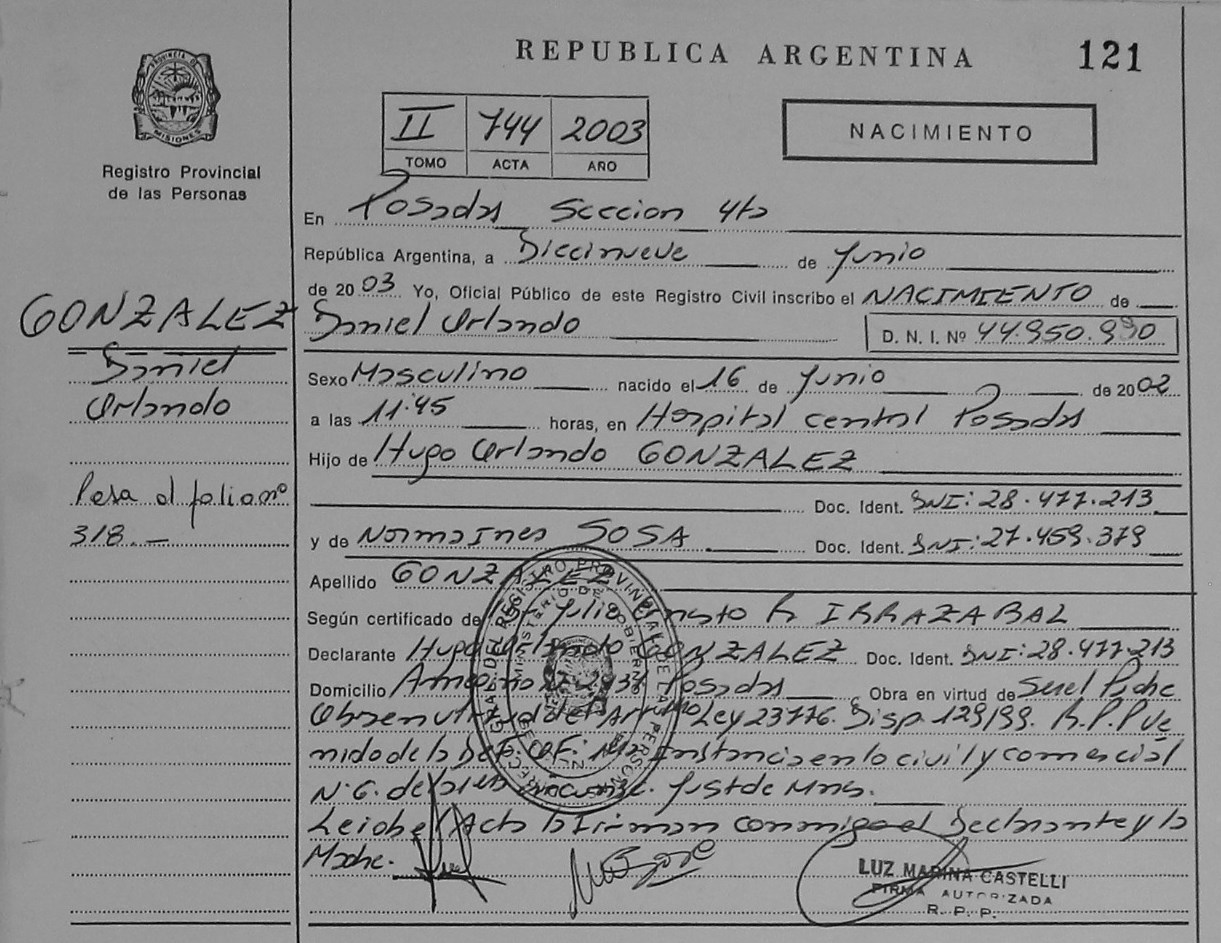 REPUBLICA ARGENTINA 121
PROVINCIA DE MISIONES
Registro Provincial
de las Personas
II 744 2003
TOMO ACTA AÑO
NACIMIENTO
En Posadas Seccion 4ta
República Argentina, a Diecinueve de Junio
de 2003 Yo, Oficial Público de este Registro Civil inscribo el NACIMIENTO de
GONZALEZ
Daniel
Orlando
Pasa al folio nº
318.-
Daniel Orlando D. N. I. Nº 44.950.990
Sexo Masculino nacido el 16 de Junio de 2002
a las 11:45 horas, en Hospital central Posadas
Hijo de Hugo Orlando GONZALEZ
Doc. Ident. DNI: 28.477.213
y de Norma Ines SOSA Doc. Ident. DNI: 27.459.379
Apellido GONZALEZ
Según certificado de Julio R IRRAZABAL
Declarante Hugo Orlando GONZALEZ Doc. Ident. DNI: 28.477.213
Domicilio Posadas Obra en virtud de
Ley 23776. Disp. 129/99. R.P.P
Instancia en lo civil y comercial
N. 6. de
Leida el Acta la Firman conmigo el Declarante y la
Madre.
LUZ MARINA CASTELLI
FIRMA AUTORIZADA
R. P. P.